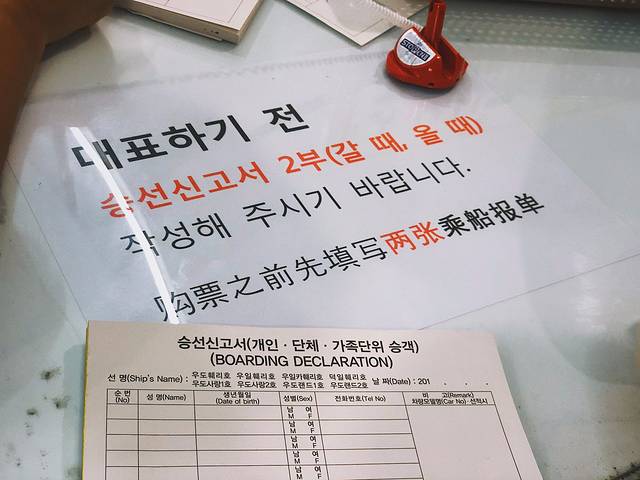 대표하기 전
승선신고서 2부(갈 때, 올 때)
작성해 주시기 바랍니다.
购票之前先填写两张乘船报单
승선신고서(개인 · 단체 · 가족단위 승객)
(BOARDING DECLARATION)
선 명(Ship's Name) : 우도훼리호 우일훼리호 우일카훼리호 덕일훼리호 날 짜(Date) : 201 . . .
우도사랑1호 우도사랑2호 우도랜드1호 우도랜드2호
순 번 성 명(Name) 생년월일 성별(Sex) 전화번호(Tel No) 비 고(Remark)
(No) (Date of birth) 차량모델명(Car No) 선적시
남 여
M F
남 여
M F
남 여
M F
남 여
M F
남 여
M F